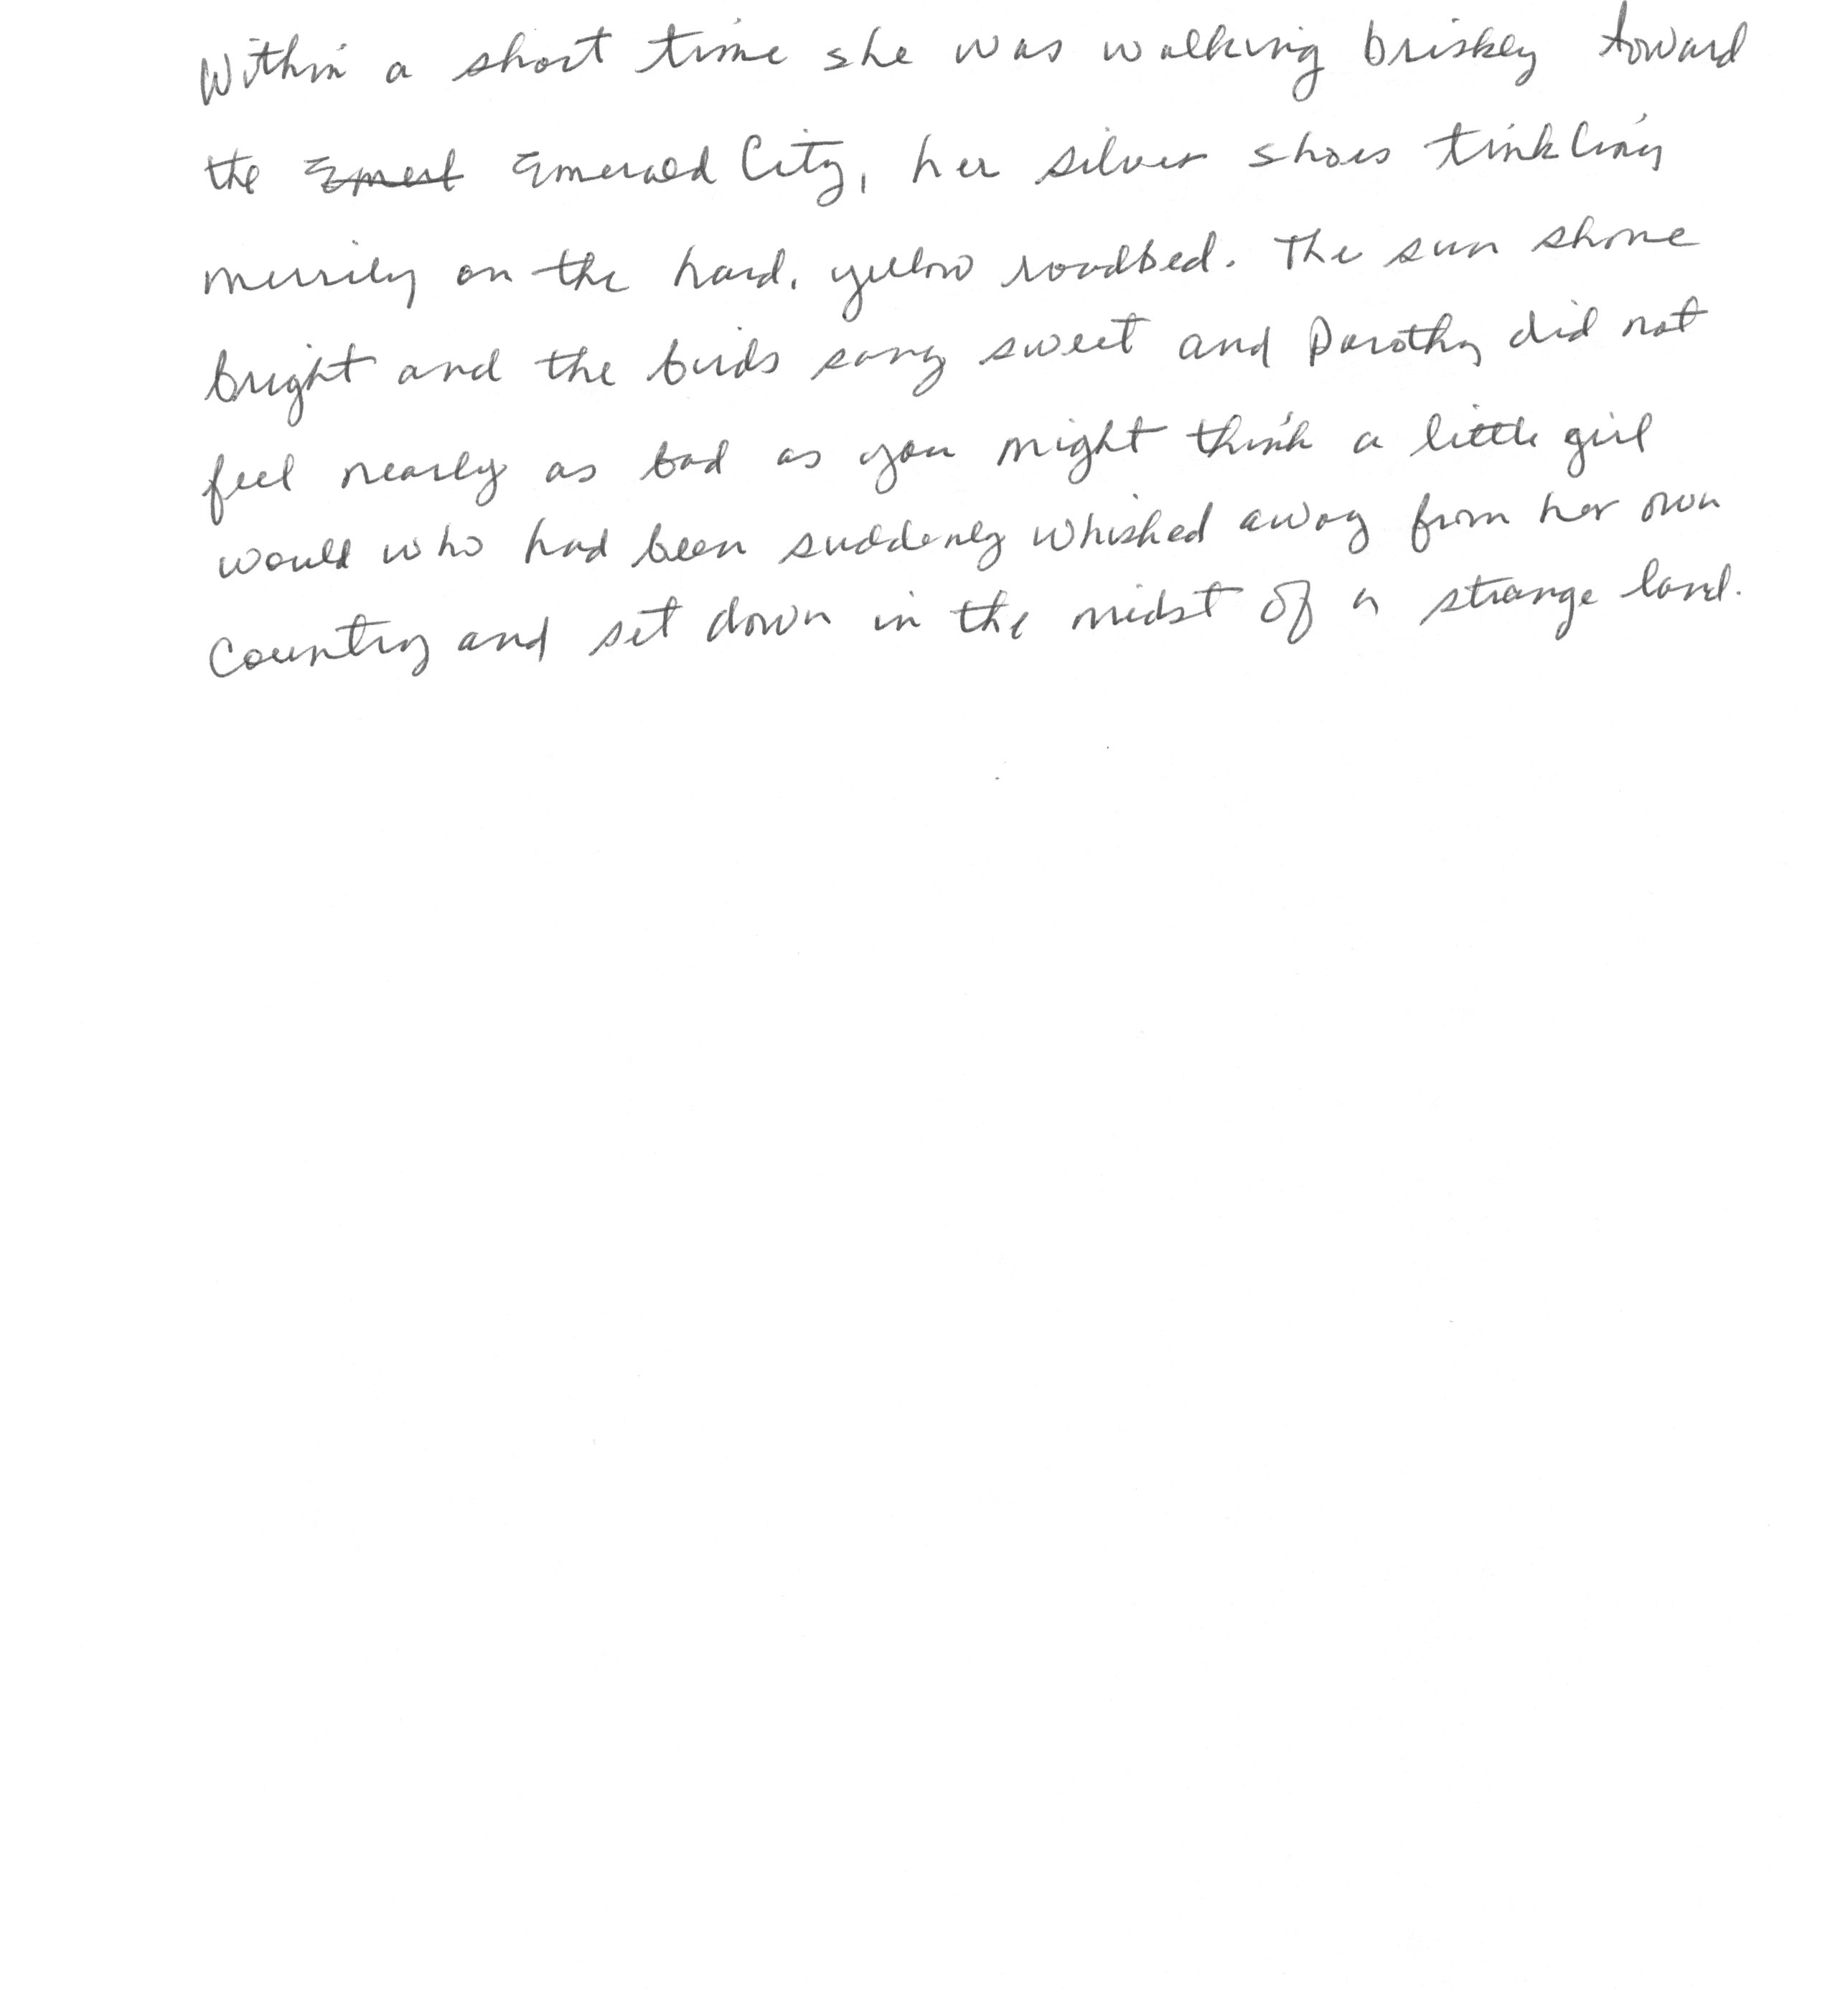 Within a short time she was walking briskly toward
the Emerl Emerald City, her silver shoes tinkling
merrily on the hard, yellow roadbed. The sun shone
bright and the birds sang sweet and Dorothy did not
feel nearly as bad as you might think a little girl
would who had been suddenly whisked away from her own
country and set down in the midst of a strange land.